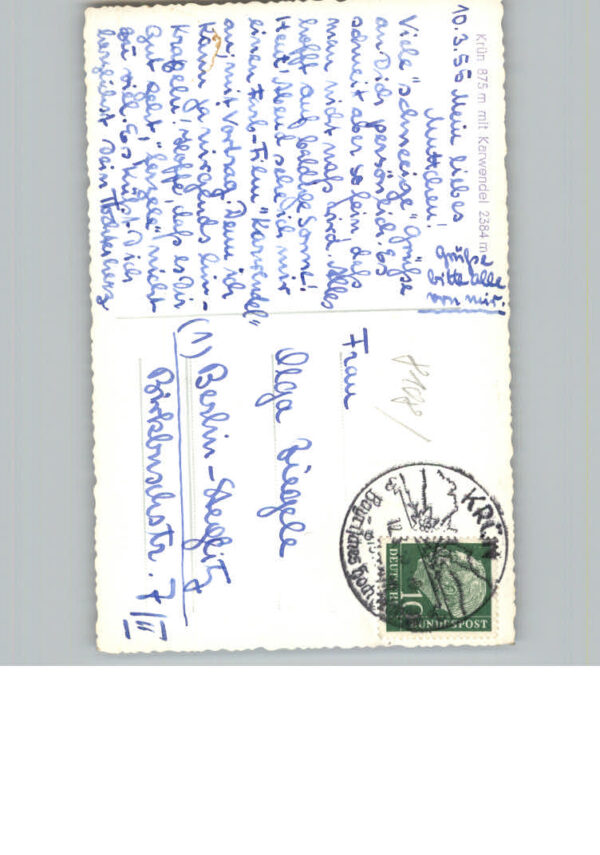 Krün 875 m mit Karwendel 2384 m
10.3.56 Mein liebes
Muttchen!
Viele "schneeige" Grüße
an Dich persönlich. Es
schneit aber so fein daß
man nicht naß wird. Alles
hofft auf baldige Sonne!
Heut' Abend seh' ich mir
einen Farb-Film "Karwendel"
an, mit Vortrag. Denn ich
kann ja nirgends hin-
kraxeln. Hoffe, daß es Dir
gut geht,
zu viel. Es küßt Dich
herzlichst Dein
Grüße
bitte alle
von mir!
Frau
Olga
(1) Berlin-Steglitz
Birkbuschstr. 7/II
KRÜN
DEUTSCHE
BUNDESPOST
10